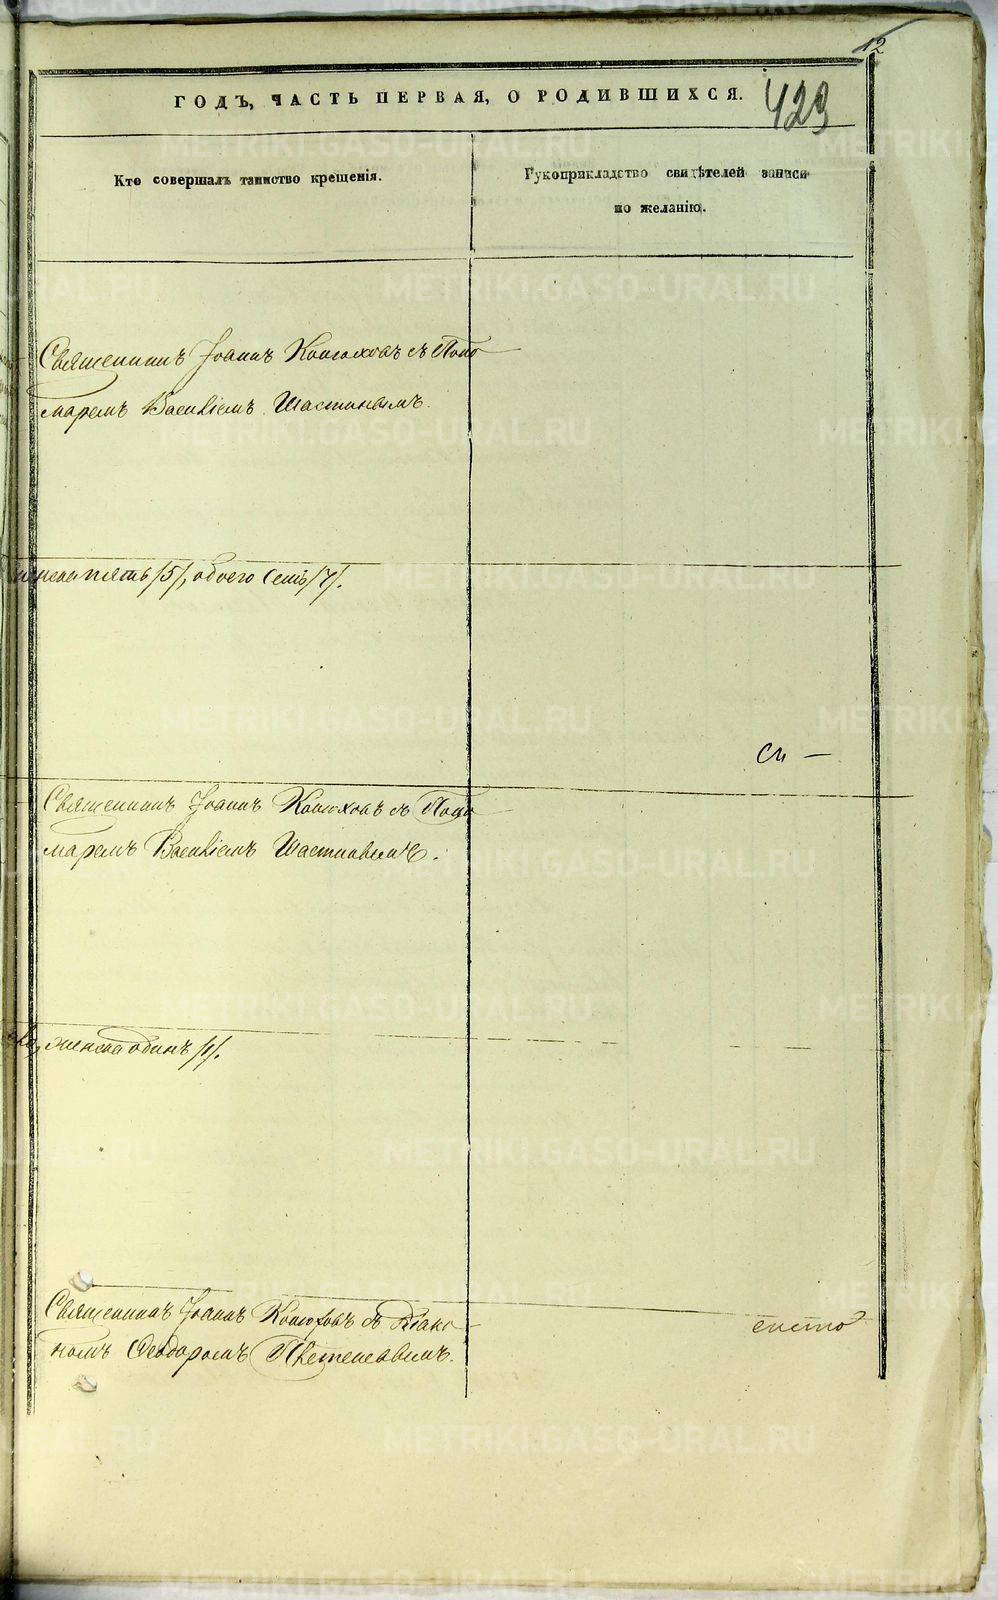 12
ГОДЪ, ЧАСТЬ ПЕРВАЯ, О РОДИВШИХСЯ.
423
Кто совершалъ таинство крещенія.
Рукоприкладство свидѣтелей записи
по желанію.
Священникъ Іоаннъ Конюховъ съ Поно
маремъ Василіемъ Шастинымъ.
женска пять /5/, обоего семь /7/.
Священникъ Іоаннъ Конюховъ съ Поно
маремъ Василіемъ
женска одинъ /1/.
Священникъ Іоаннъ Конюховъ съ Діако
номъ Ѳеодоромъ
METRIKI.GASO-URAL.RU